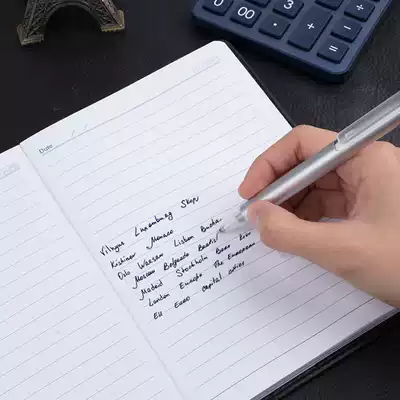 0 00 3 +
Date
Vilnyus Luxemburg Skop
Monaco
Oslo Warsaw Lisbon
Moscow Belgrade
Madrid Stockholm Bern
London Europe The European
EU Euro capital cities